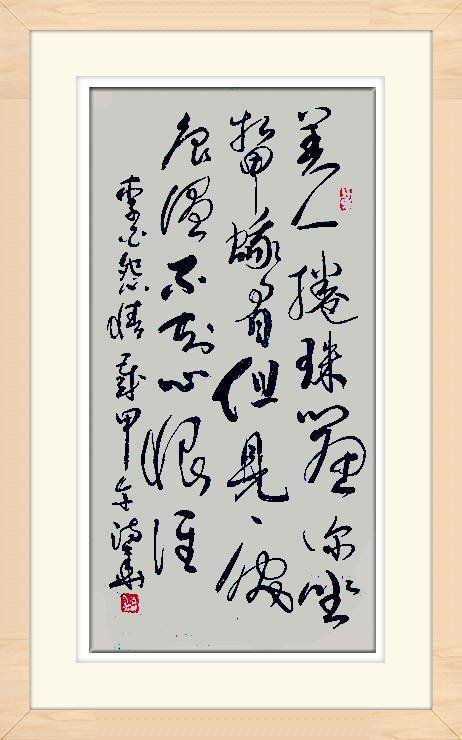 美人捲珠簾深坐
顰蛾眉但見淚
痕濕不知心恨誰
李白怨情歲甲午